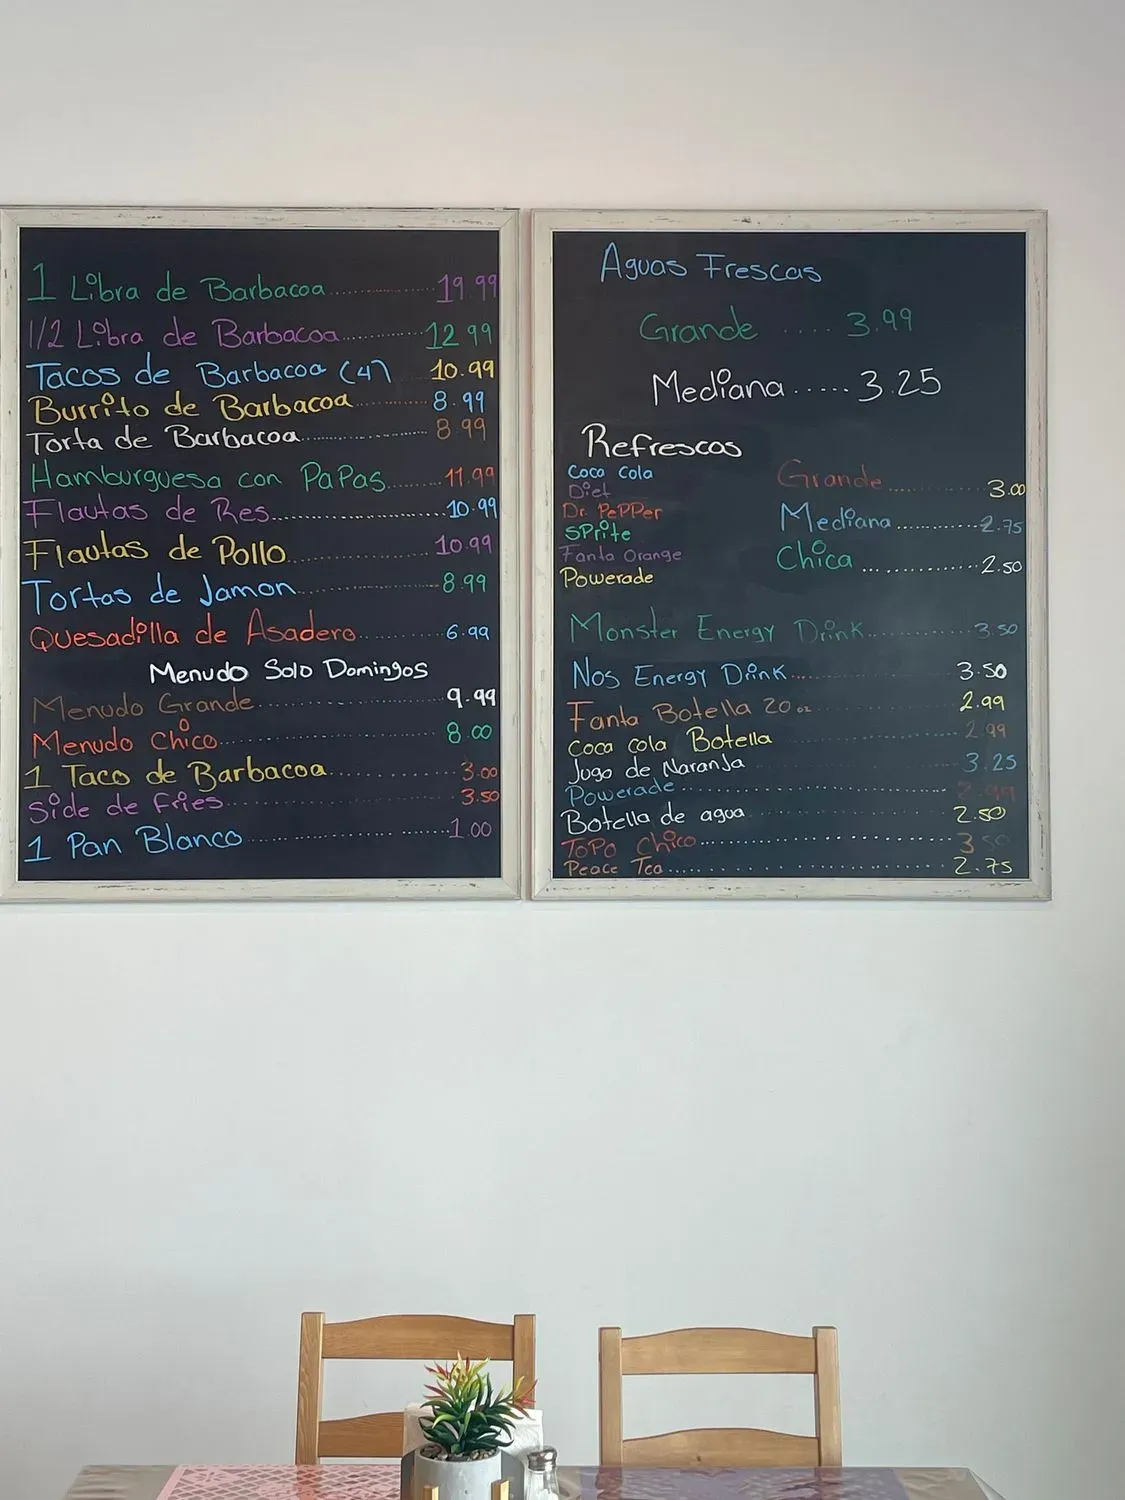 1 Libra de Barbacoa.......... 19.99
1/2 Libra de Barbacoa.......... 12.99
Tacos de Barbacoa (4) 10.99
Burrito de Barbacoa.......... 8.99
Torta de Barbacoa.......... 8.99
Hamburguesa con PaPas.......... 11.99
Flautas de Res.......... 10.99
Flautas de Pollo.......... 10.99
Tortas de Jamon.......... 8.99
Quesadilla de Asadero.......... 6.99
Menudo Solo Domingos
Menudo Grande.......... 9.99
Menudo Chico.......... 8.00
1 Taco de Barbacoa.......... 3.00
Side de fries.......... 3.50
1 Pan Blanco.......... 1.00
Aguas Frescas
Grande ..... 3.99
Mediana ..... 3.25
Refrescos
Coca Cola
Diet
Dr. PePPer
SPrite
Fanta Orange
Powerade
Grande.......... 3.00
Mediana.......... 2.75
Chica.......... 2.50
Monster Energy Drink.......... 3.50
Nos Energy Drink.......... 3.50
Fanta Botella 20 oz 2.99
Coca cola Botella .......... 2.99
Jugo de NaranJa 3.25
Powerade.......... 2.99
Botella de agua .......... 2.50
ToPo Chico.......... 3.50
Peace Tea.......... 2.75